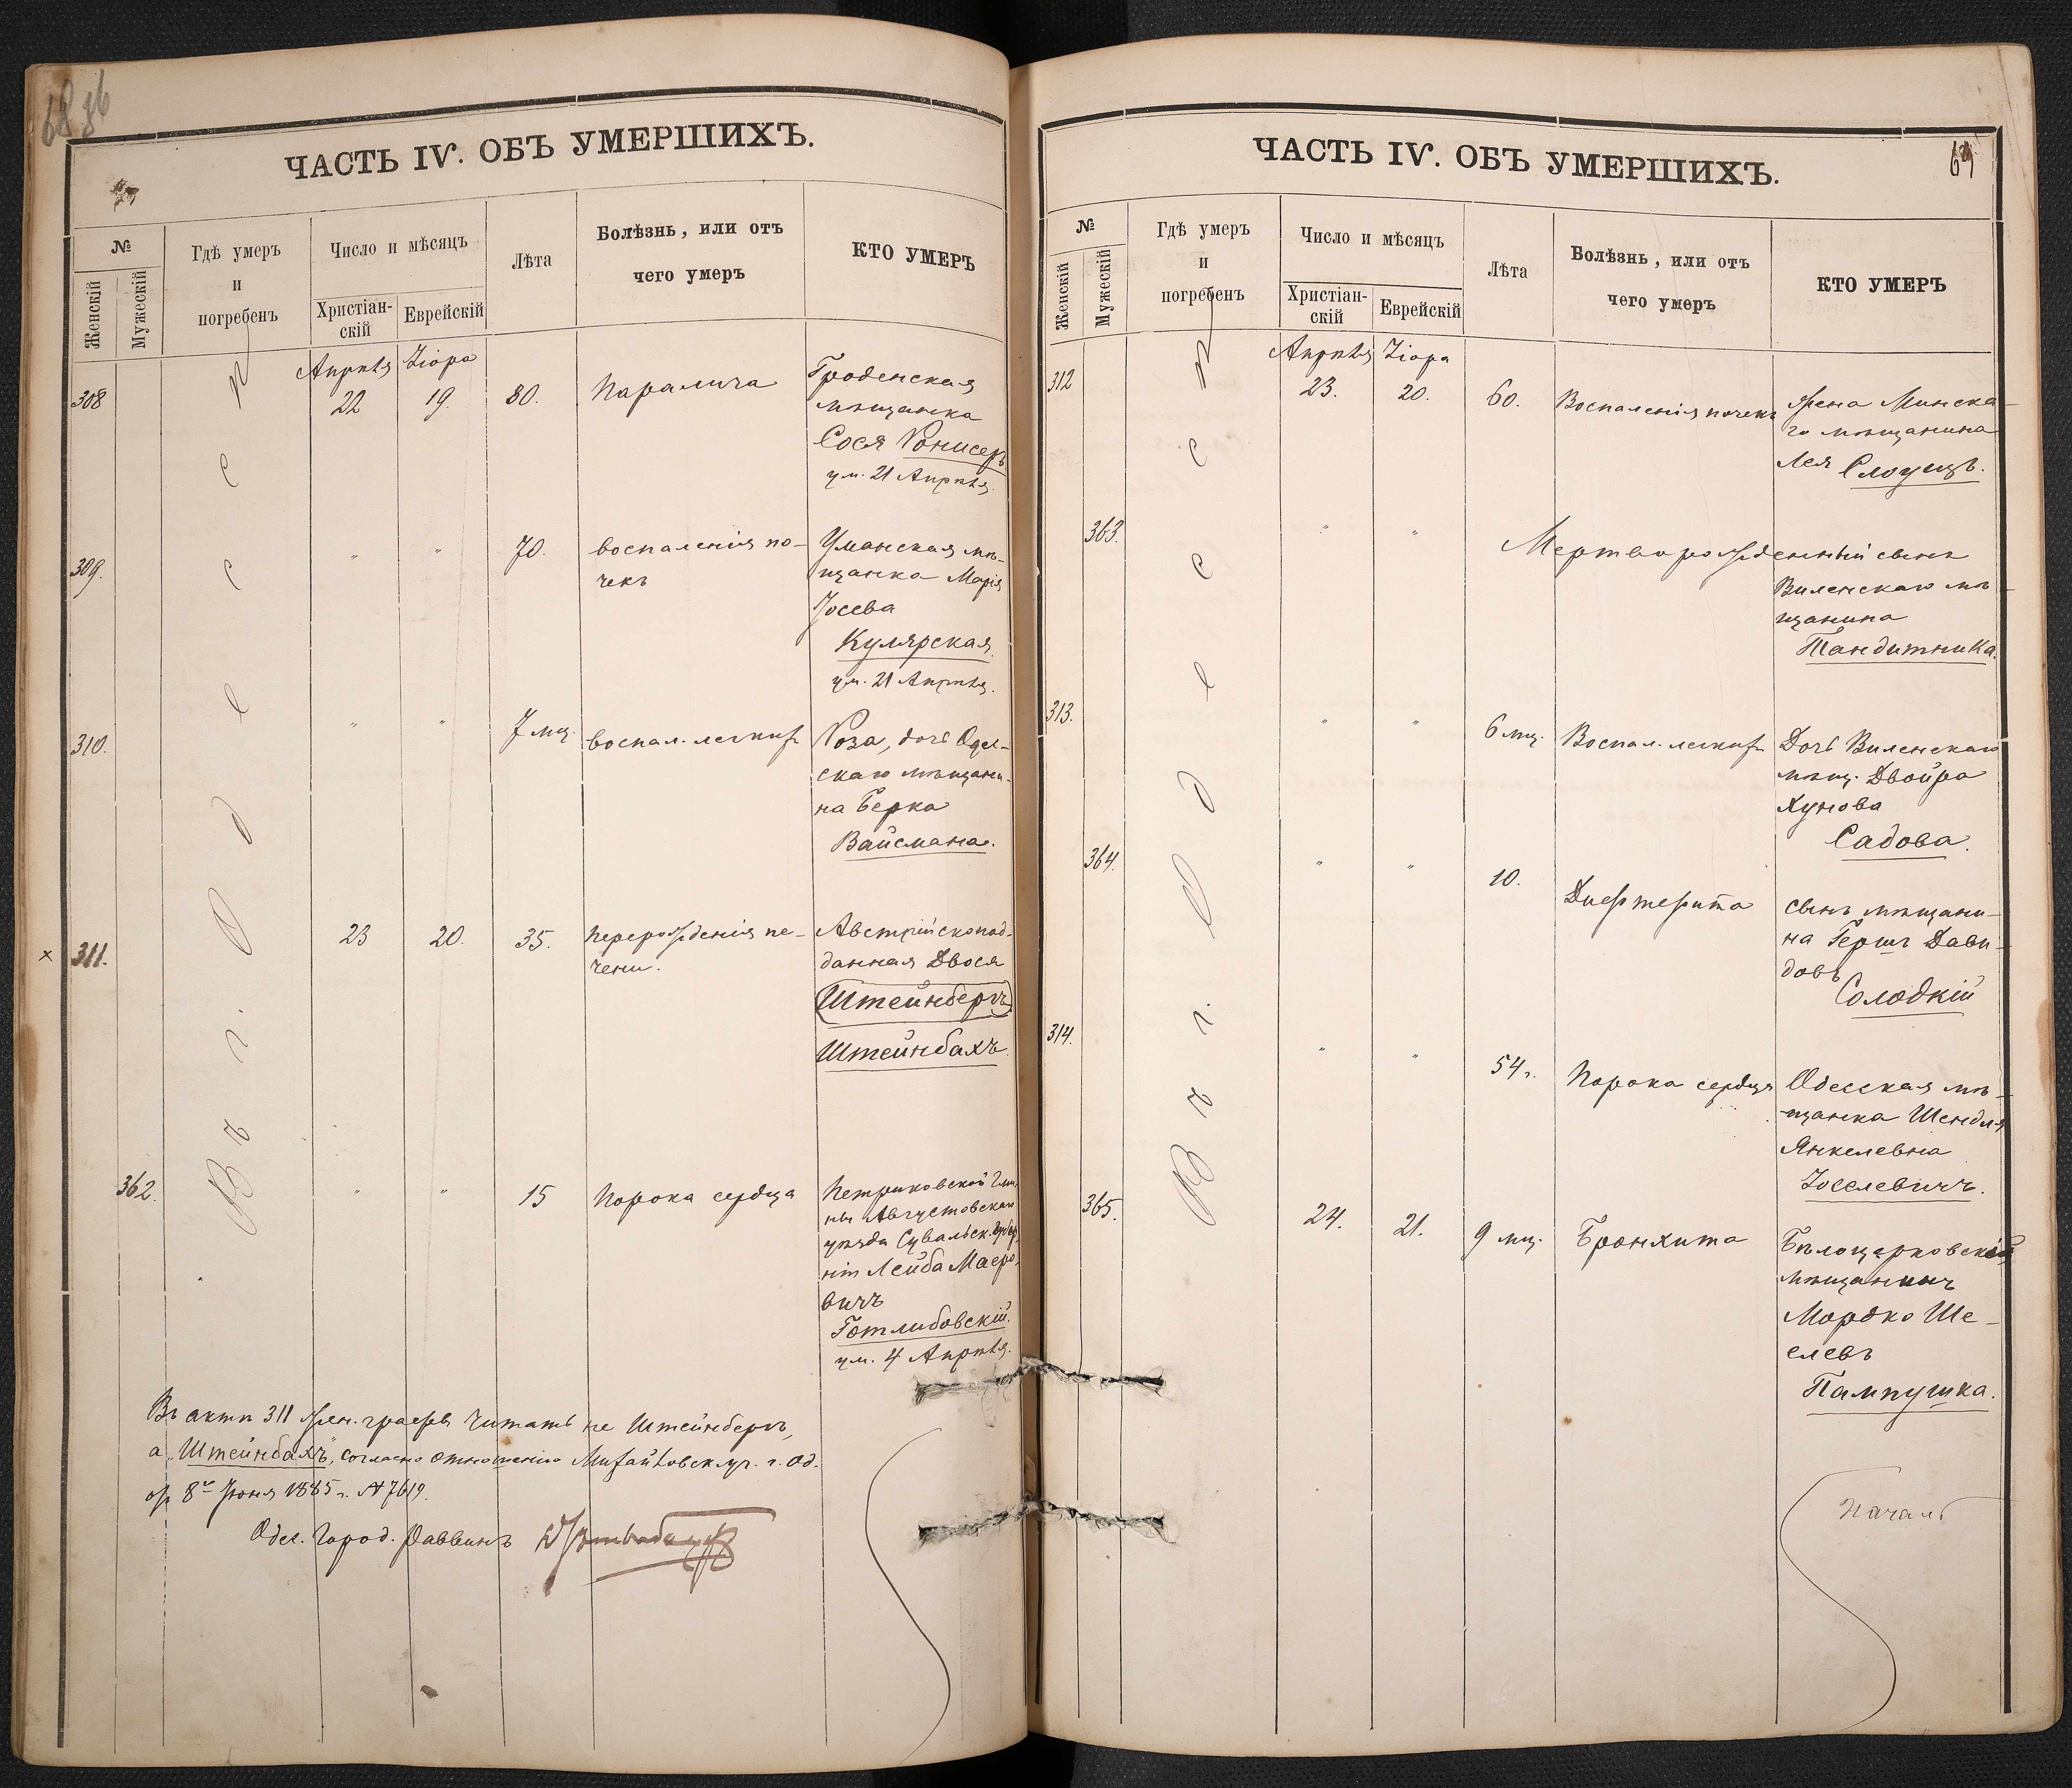 ЧАСТЬ IV. ОБЪ УМЕРШИХЪ.
№
Женскій
Мужескій
Гдѣ умеръ
и
погребенъ
Число и мѣсяцъ
Христіан-
скій
Еврейскій
Лѣта
Болѣзнь, или отъ
чего умеръ
КТО УМЕРЪ
Въ г. Одессѣ
308
Апрѣля
22
Ііора
19.
80.
Паралича
Гроденская
мѣщанка
Сося
ум. 21 Апрѣля.
309.
"
"
70.
воспаленія по-
чекъ
Уманская мѣ-
щанка Марія
Іосева
Кулярская.
ум. 21 Апрѣля.
310.
"
"
7 мц.
воспал. легкихъ
Роза, дочь Одес-
скаго мѣщани-
на Берка
Вайсмана.
× 311.
23
20.
35.
перерожденія пе-
чени.
Австрійскопод-
данная Двося
(Штейнбергъ)
Штейнбахъ.
362.
"
"
15
Порока сердца
Петриковской Гми-
ны Августовскаго
уѣзда Сувальск. губер-
ніи Лейба Маеро-
вичъ
Готлибовскій.
ум. 4 Апрѣля.
Въ актѣ 311 жен. графѣ читать не Штейнбергъ,
а „Штейнбахъ", согласно отношенію Михайловск. уч. г. Од.
отъ 8го Іюня 1885 г. № 7619.
Одес. Город. Раввинъ
ЧАСТЬ IV. ОБЪ УМЕРШИХЪ.
69
№
Женскій
Мужескій
Гдѣ умеръ
и
погребенъ
Число и мѣсяцъ
Христіан-
скій
Еврейскій
Лѣта
Болѣзнь, или отъ
чего умеръ
КТО УМЕРЪ
Въ г. Одессѣ
312
Апрѣля
23.
Ііора
20.
60.
Воспаленія почекъ
Жена Минска-
го мѣщанина
Лея Слоущъ.
363.
"
"
Мертворожденный сынъ
Виленскаго мѣ-
щанина
Тандитника.
313.
"
"
6 мц.
Воспал. легкихъ
Дочь Виленскаго
мѣщ. Двойра
Хунова
Садова.
364.
"
"
10.
Дифтерита
сынъ мѣщани-
на Гершъ Дави-
довъ
Солодкій
314.
"
"
54 г.
Порока сердца
Одесская мѣ-
щанка Шендля
Янкелевна
Іоселевичъ.
365.
24.
21.
9 мц.
Бронхита
Бѣлоцерковскій
мѣщанинъ
Мордко Ше-
елевъ
Пампушка.